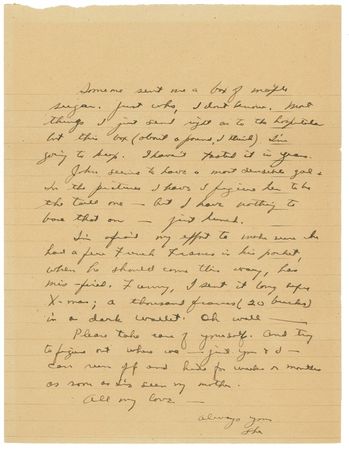 Someone sent me a box of maple
sugar. Just who, I don't know. Most
things I just send right on to the hospitals
but this box (about a pound, I think) I'm
going to keep. I haven't tasted it in years.
John seems to have a most desirable gal.
In the pictures I have I figure her to be
the tall one — but I have nothing to
base that on — just hunch.
I'm afraid my effort to make sure he
had a few French Francs in his pocket,
when he should come this way, has
mis-fired. Funny, I sent it long before
X-mas; a thousand francs (20 bucks)
in a dark wallet. Oh well —
Please take care of yourself. And try
to figure out where we — just you & I —
can run off and hide for weeks or months
as soon as I've seen my mother.
All my love —
always your
Ike